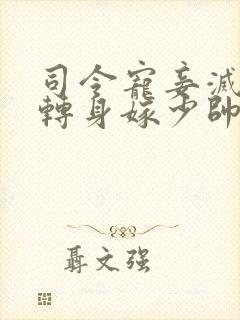 司令寵妾滅
轉身嫁少帥
聶文强